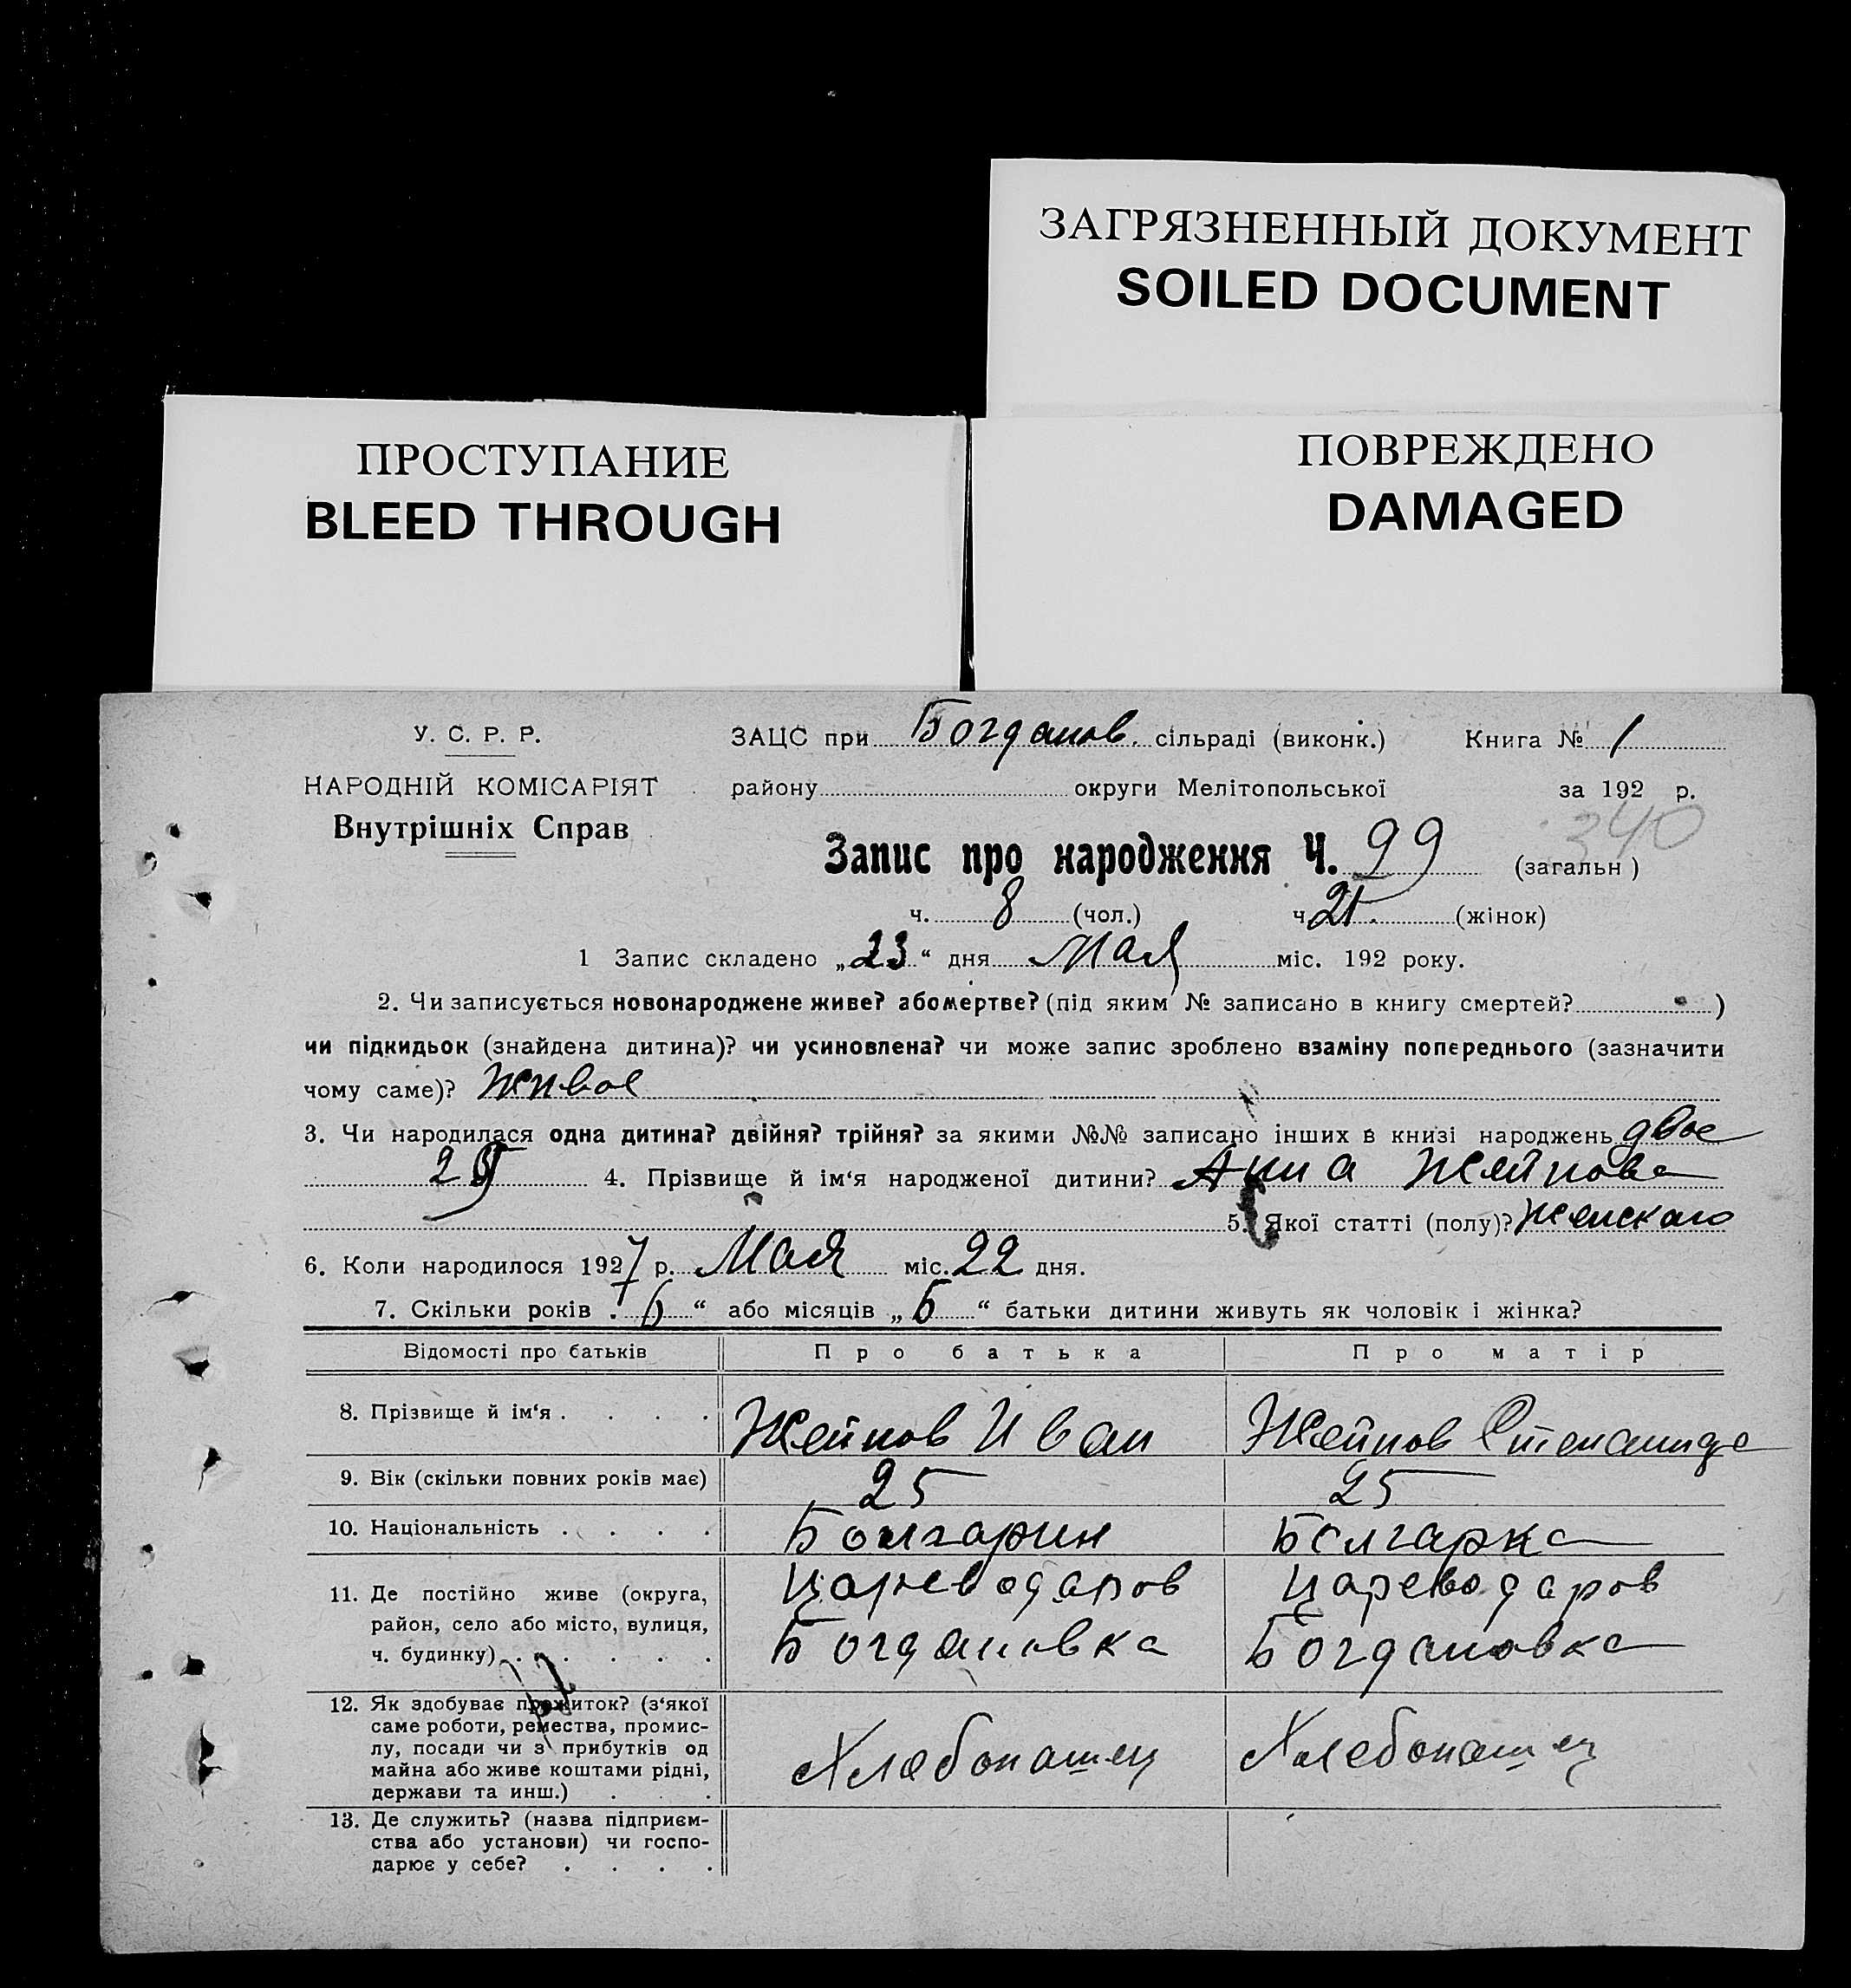 ЗАГРЯЗНЕННЫЙ ДОКУМЕНТ
SOILED DOCUMENT
ПРОСТУПАНИЕ
BLEED THROUGH
ПОВРЕЖДЕНО
DAMAGED
У. С. Р. Р. ЗАЦС при Богданов. сільраді (виконк.) Книга № 1
НАРОДНІЙ КОМІСАРІЯТ району округи Мелітопольської за 192 р.
Внутрішніх Справ
340
Запис про народження Ч. 99 (загальн)
ч. 8 (чол.) ч. 21. (жінок)
1 Запис складено „23“ дня Мая міс. 192 року.
2. Чи записується новонароджене живе? або мертве? (під яким № записано в книгу смертей? )
чи підкидьок (знайдена дитина)? чи усиновлена? чи може запис зроблено взаміну попереднього (зазначити
чому саме)? живое
3. Чи народилася одна дитина? двійня? трійня? за якими №№ записано інших в книзі народжень двое
4. Прізвище й ім‘я народженої дитини? Анна Жейнова
5. Якої статті (полу)? женскаго
6. Коли народилося 1927 р. Мая міс. 22 дня.
7. Скільки років „6“ або місяців „Б“ батьки дитини живуть як чоловік і жінка?
Відомості про батьків Про батька Про матір
8. Прізвище й ім‘я . . . . Жейнов Иван Жейнов Степанида
9. Вік (скільки повних років має) 25 25
10. Національність . . . . Болгарин Болгарка
11. Де постійно живе (округа, Цареводаров Цареводаров
район, село або місто, вулиця,
ч. будинку) . . . . . . Богдановка Богдановка
12. Як здобуває прожиток? (з‘якої
саме роботи, ремества, промис-
лу, посади чи з прибутків од Хлебопашец Хлебопашец
майна або живе коштами рідні,
держави та инш.) . . .
13. Де служить? (назва підприєм-
ства або установи) чи госпо-
дарює у себе? . . . .